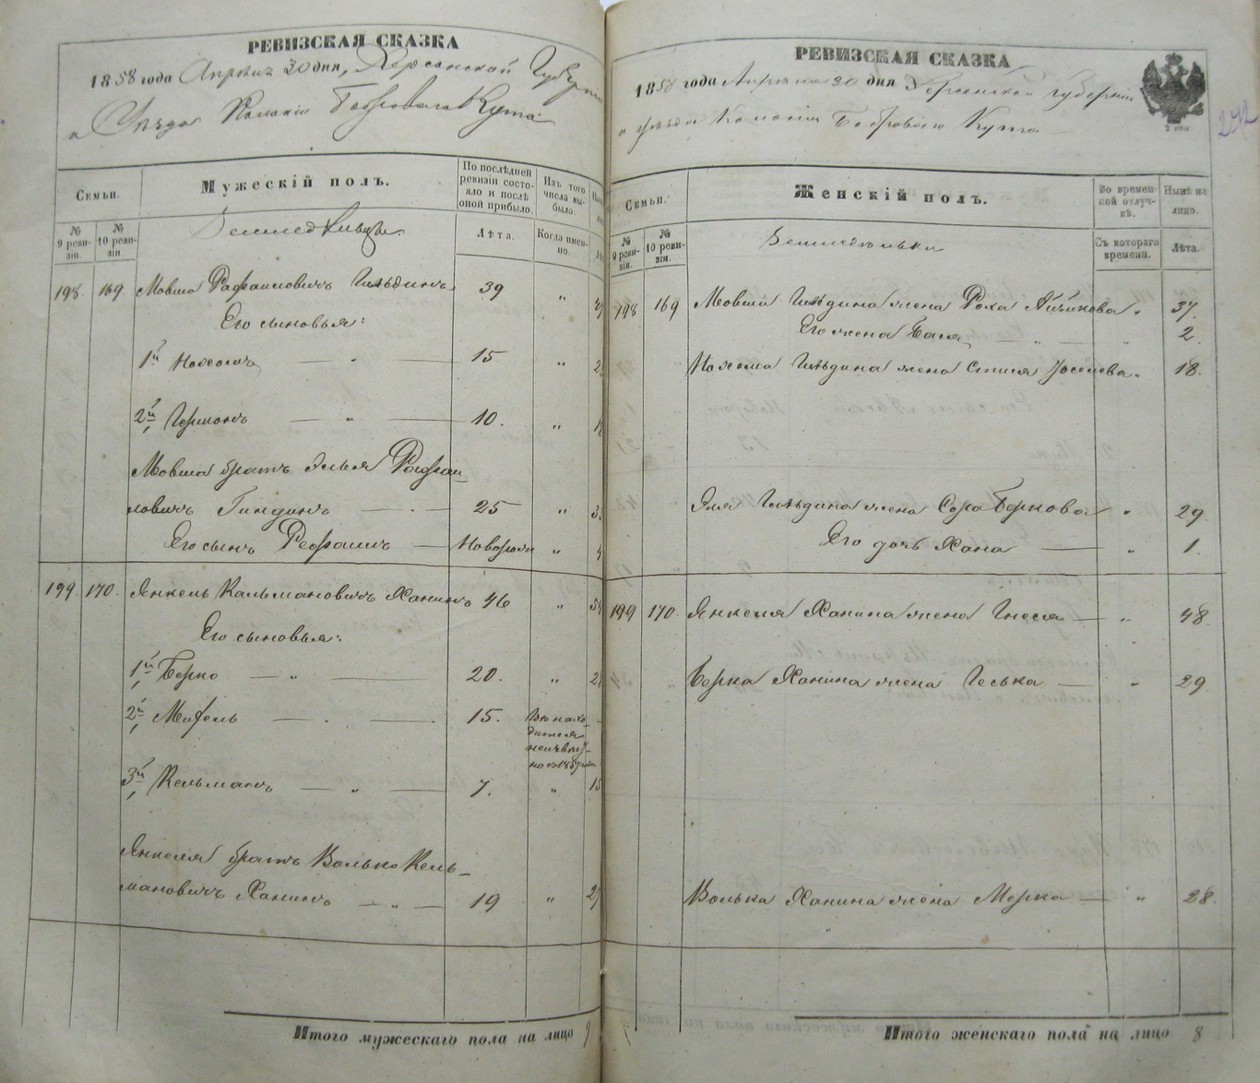 РЕВИЗСКАЯ СКАЗКА
1858 года Апреля 30 дня, Херсонской Губерніи
и Уѣзда Колоніи Бобрового Кута
Семьи.
Мужескій полъ.
По послѣдней ревизіи состояло и послѣ оной прибыло.
Изъ того числа выбыло.
№ 9 ревизіи.
№ 10 ревизіи.
Земледѣльцы
Лѣта.
Когда именно.
198. 169. Мовша Рафаиловичъ Гильдинъ 39 "
Его сыновья:
1й Нохомъ — " — 15 "
2й, Гершонъ — " — 10. "
Мовша братъ Эльля Рафаи
ловичъ Гиндинъ — 25 "
Его сынъ Рефаилъ — Новорож "
199. 170. Янкель Кальмановичъ Ханинъ 46 "
Его сыновья:
1й, Берко — " — 20. "
2й, — 15.
3й, Кельманъ — " — 7. "
Янкеля братъ Волько Кель-
мановичъ Ханинъ — " — 19 "
Итого мужескаго пола на лицо 9
РЕВИЗСКАЯ СКАЗКА
1858 года Апреля 30 дня Херсонской Губерніи
и уѣзда Колоніи Бобрового Кута
Семьи.
Женскій полъ.
Во временной отлучкѣ.
Нынѣ на лицо.
№ 9 ревизіи.
№ 10 ревизіи.
Съ котораго времени.
Лѣта.
198 169 Мовши Гильдина жена Роха " 37.
Его жена Бася " 2.
Нохома Гильдина жена Стися " 18.
Эля Гильдина жена Сора Беркова " 29.
Его дочь Хана — " 1.
199 170. Янкеля Ханина жена Гнеся — " 48.
Берка Ханина жена Песька — " 29
Волька Ханина жена Мерка — " 28.
Итого женскаго пола на лицо 8